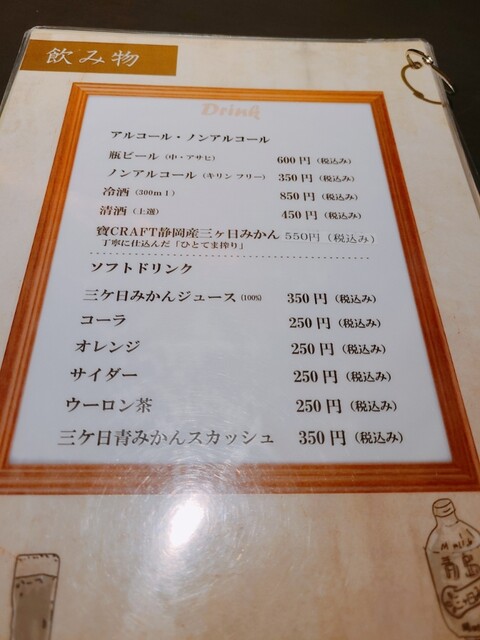 飲み物
Drink
アルコール・ノンアルコール
瓶ビール（中・アサヒ） 600円（税込み）
ノンアルコール（キリン フリー） 350円（税込み）
冷酒（300ml） 850円（税込み）
清酒（上選） 450円（税込み）
寶CRAFT静岡産三ヶ日みかん 550円（税込み）
丁寧に仕込んだ「ひとてま搾り」
ソフトドリンク
三ケ日みかんジュース（100%） 350円（税込み）
コーラ 250円（税込み）
オレンジ 250円（税込み）
サイダー 250円（税込み）
ウーロン茶 250円（税込み）
三ケ日青みかんスカッシュ 350円（税込み）